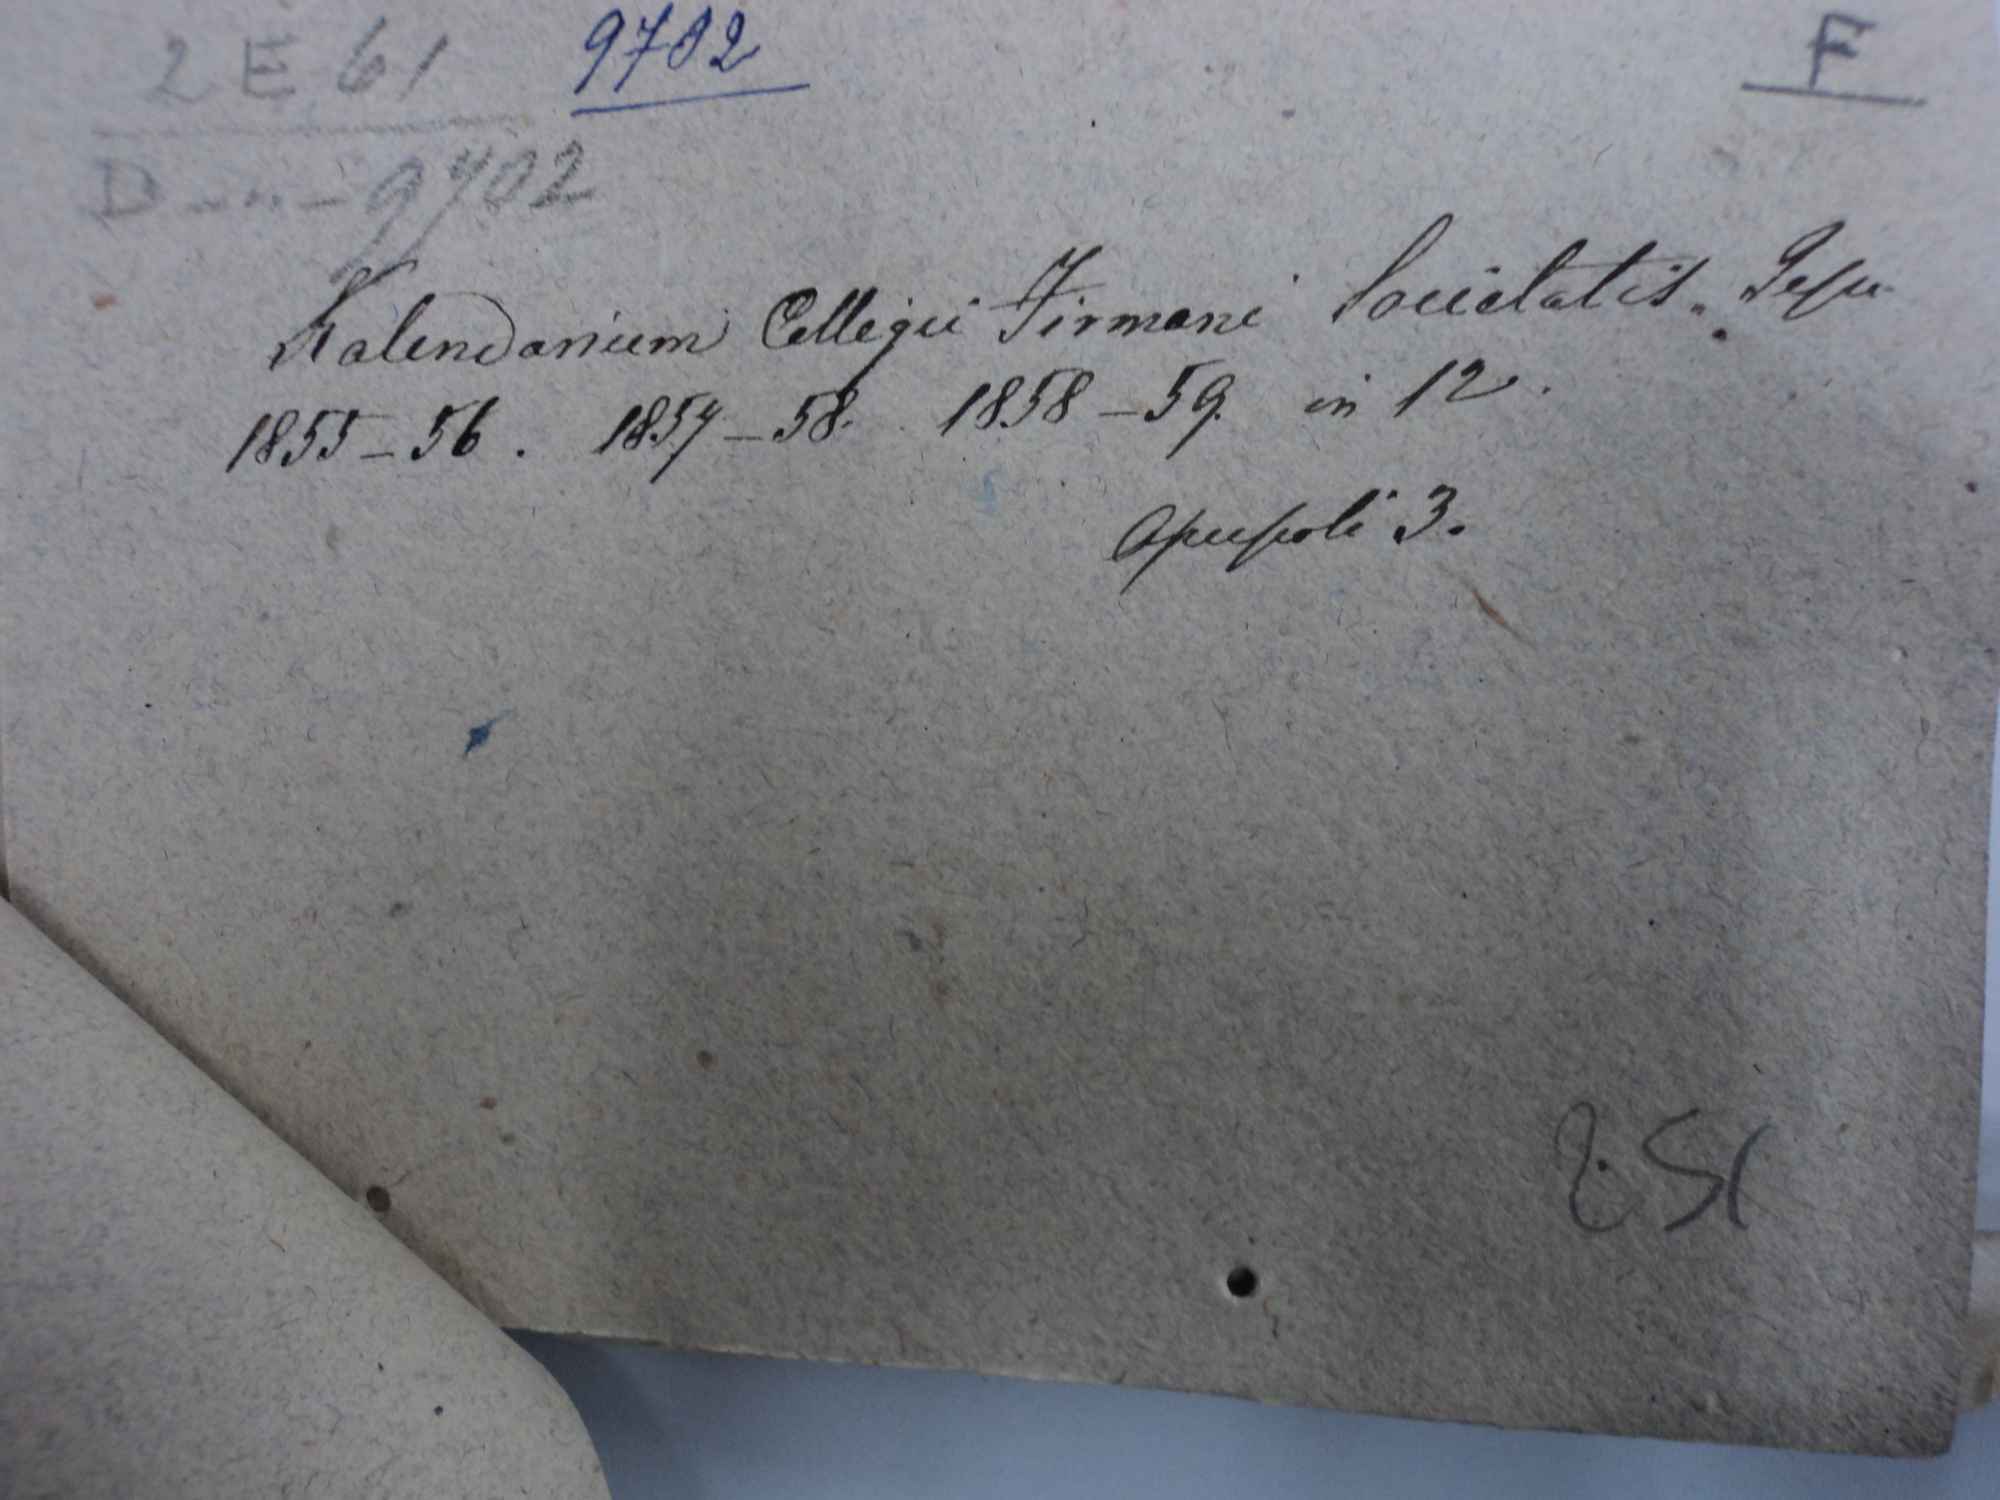 2 E 61 9702 F
D - „ - 9702
Kalendarium Collegii Firmani Societatis Jesu
1855 - 56. 1857 - 58. 1858 - 59. in 12.
Opuscoli 3.
251